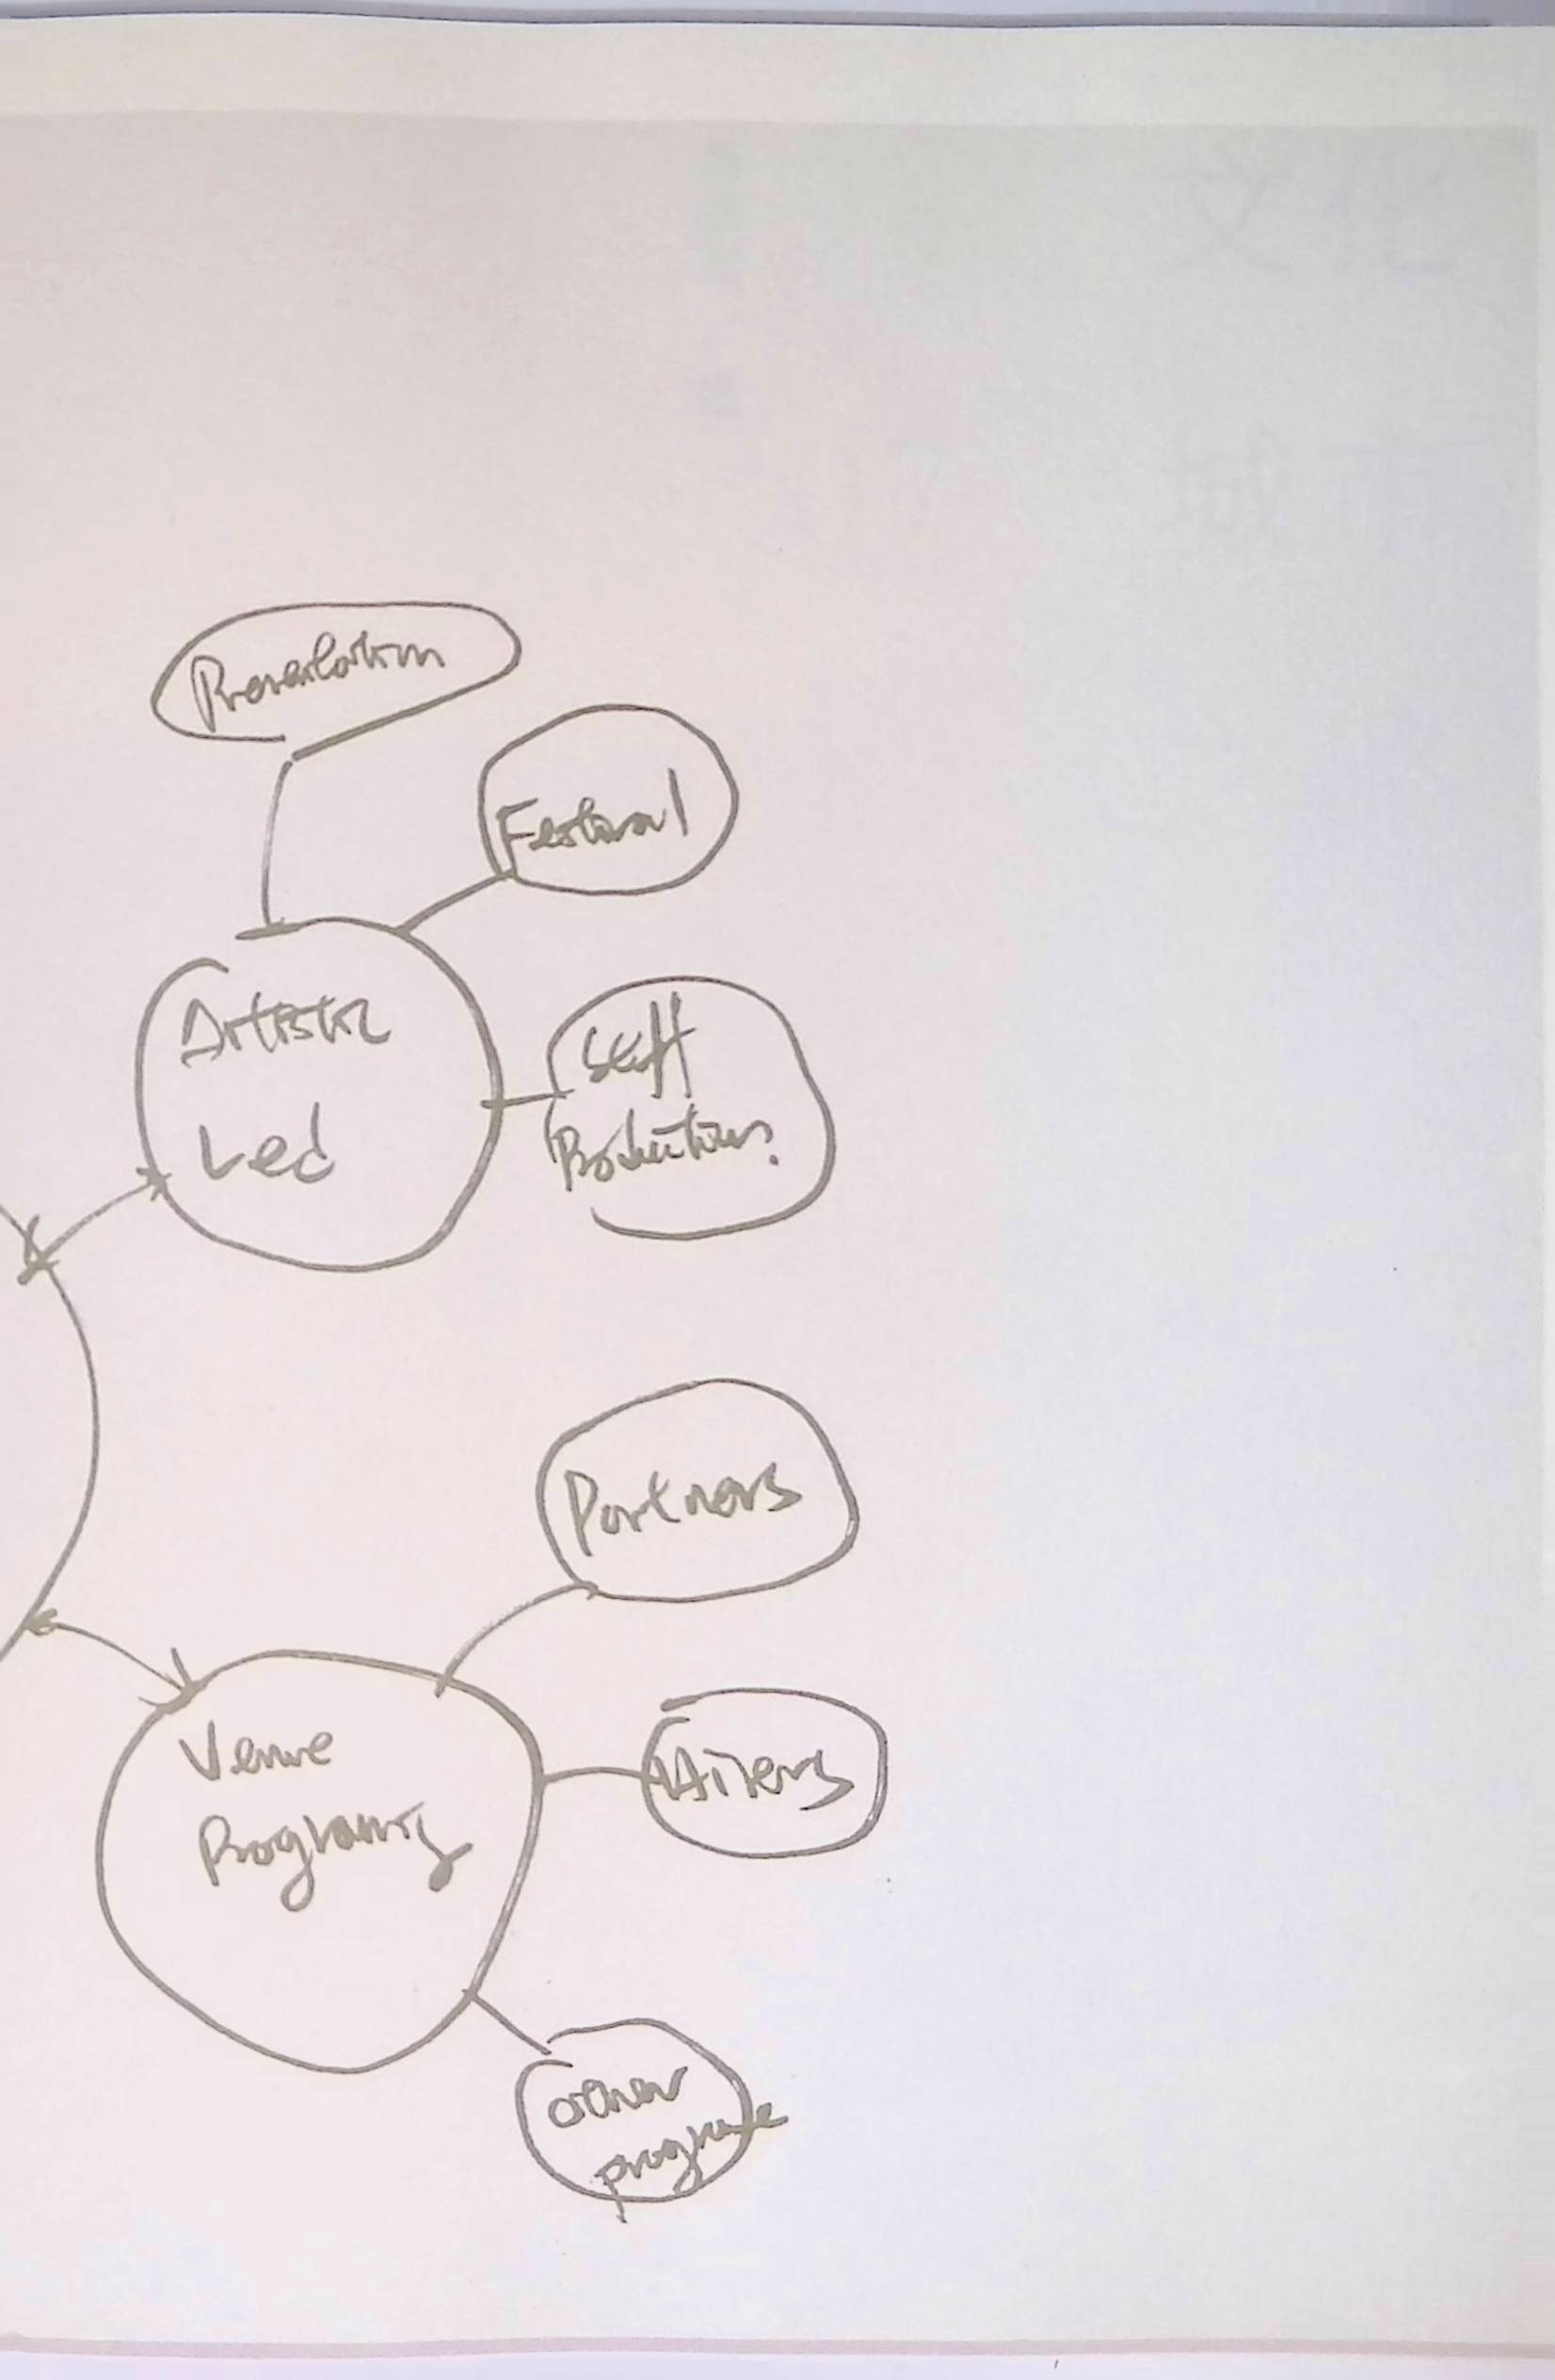 Presentation
Festival
Artistic
Led
Self
Productions.
Partners
Hirers
Venue
Programs
other
programe